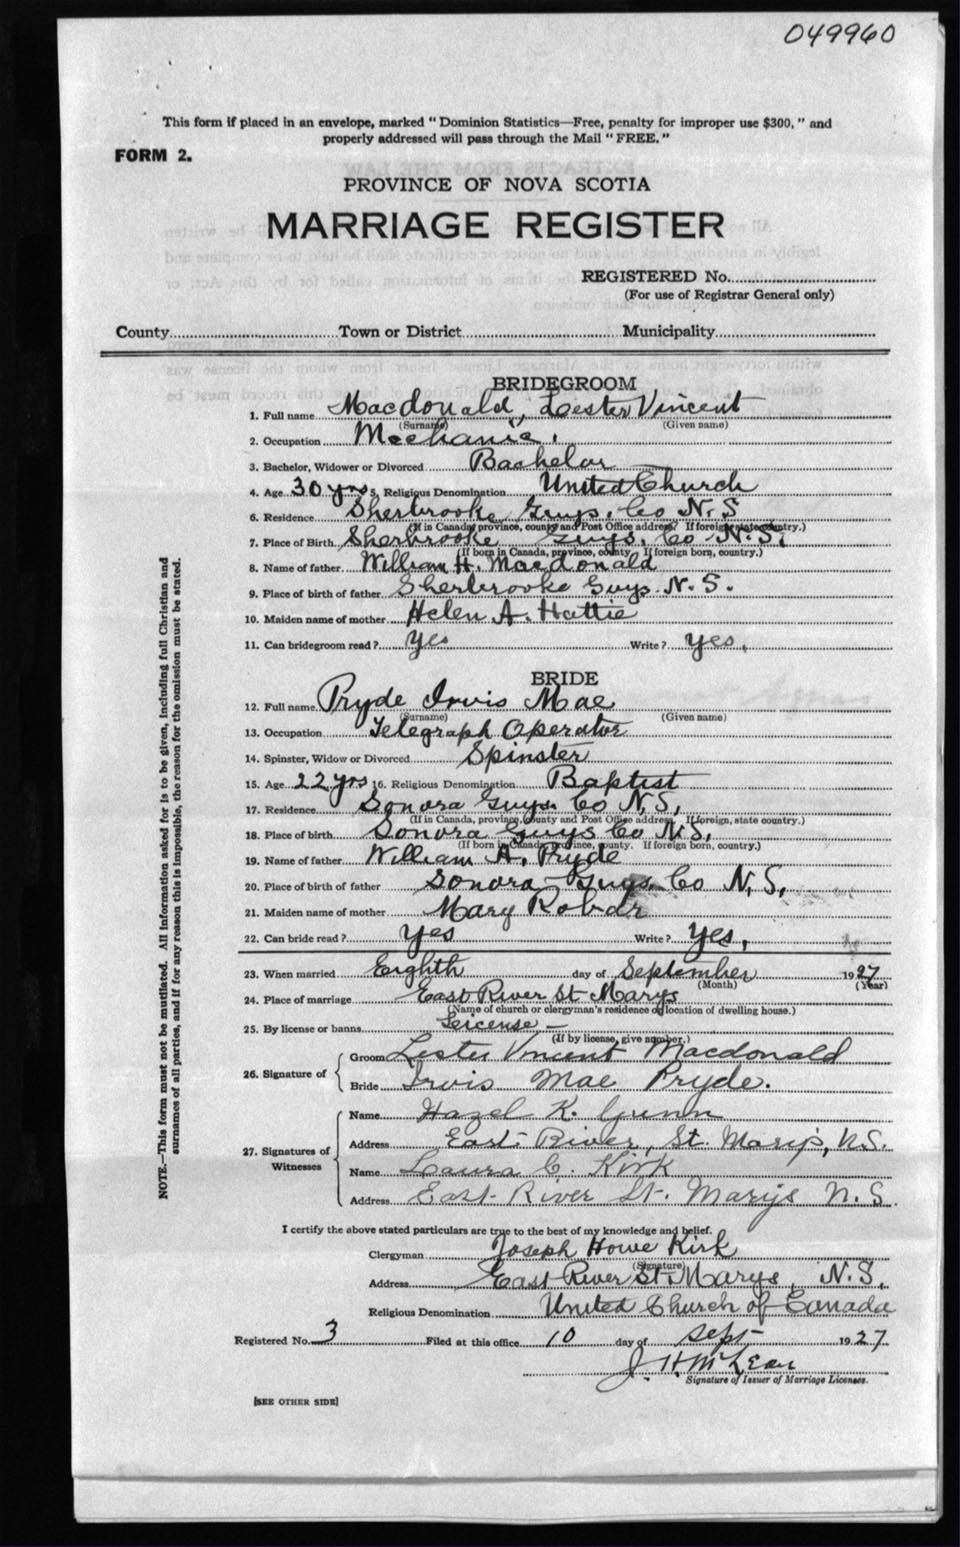 049960
This form if placed in an envelope, marked " Dominion Statistics—Free, penalty for improper use $300, " and
properly addressed will pass through the Mail " FREE. "
FORM 2.
PROVINCE OF NOVA SCOTIA
MARRIAGE REGISTER
REGISTERED No.
(For use of Registrar General only)
County Town or District Municipality
BRIDEGROOM
1. Full name Macdonald, Lester Vincent
(Surname) (Given name)
2. Occupation Mechanic.
3. Bachelor, Widower or Divorced Bachelor
4. Age 30 yrs 5. Religious Denomination United Church
6. Residence Sherbrooke Guys. Co N.S
(If in Canada, province, county and Post Office address. If foreign state country.)
7. Place of Birth Sherbrooke Guys. Co N.S.
(If born in Canada, province, county. If foreign born, country.)
8. Name of father William H. Macdonald
9. Place of birth of father Sherbrooke Guys. N.S.
10. Maiden name of mother Helen A. Hattie
11. Can bridegroom read? Yes Write? Yes.
BRIDE
12. Full name Pryde Irvis Mae
(Surname) (Given name)
13. Occupation Telegraph Operator
14. Spinster, Widow or Divorced Spinster
15. Age 22 yrs 16. Religious Denomination Baptist
17. Residence Sonora Guys. Co N.S.
(If in Canada, province, county and Post Office address. If foreign, state country.)
18. Place of birth Sonora Guys Co N.S.
(If born in Canada, province, county. If foreign born, country.)
19. Name of father William A. Pryde
20. Place of birth of father Sonora Guys. Co N.S.
21. Maiden name of mother Mary
22. Can bride read? Yes Write? Yes.
23. When married Eighth day of September 1927
(Month) (Year)
24. Place of marriage East River St Marys
(Name of church or clergyman's residence or location of dwelling house.)
25. By license or banns License —
(If by license, give number.)
26. Signature of Groom Lester Vincent Macdonald
Bride Irvis Mae Pryde.
27. Signatures of Witnesses Name Hazel K. Gunn
Address East River, St. Mary's, N.S.
Name Laura C. Kirk
Address East River St. Marys N.S.
I certify the above stated particulars are true to the best of my knowledge and belief.
Clergyman Joseph Howe Kirk
(Signature)
Address East River St. Marys, N.S.
Religious Denomination United Church of Canada
Registered No. 3 Filed at this office 10 day of Sept 1927
J. H. McLean
Signature of Issuer of Marriage Licenses.
[SEE OTHER SIDE]
NOTE.—This form must not be mutilated. All information asked for is to be given, including full Christian and
surnames of all parties, and if for any reason this is impossible, the reason for the omission must be stated.